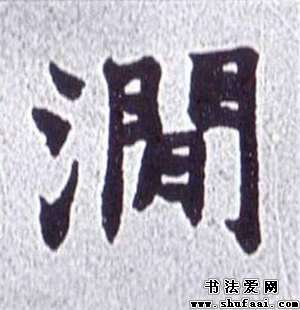 澗
书法爱网
www.shufaai.com